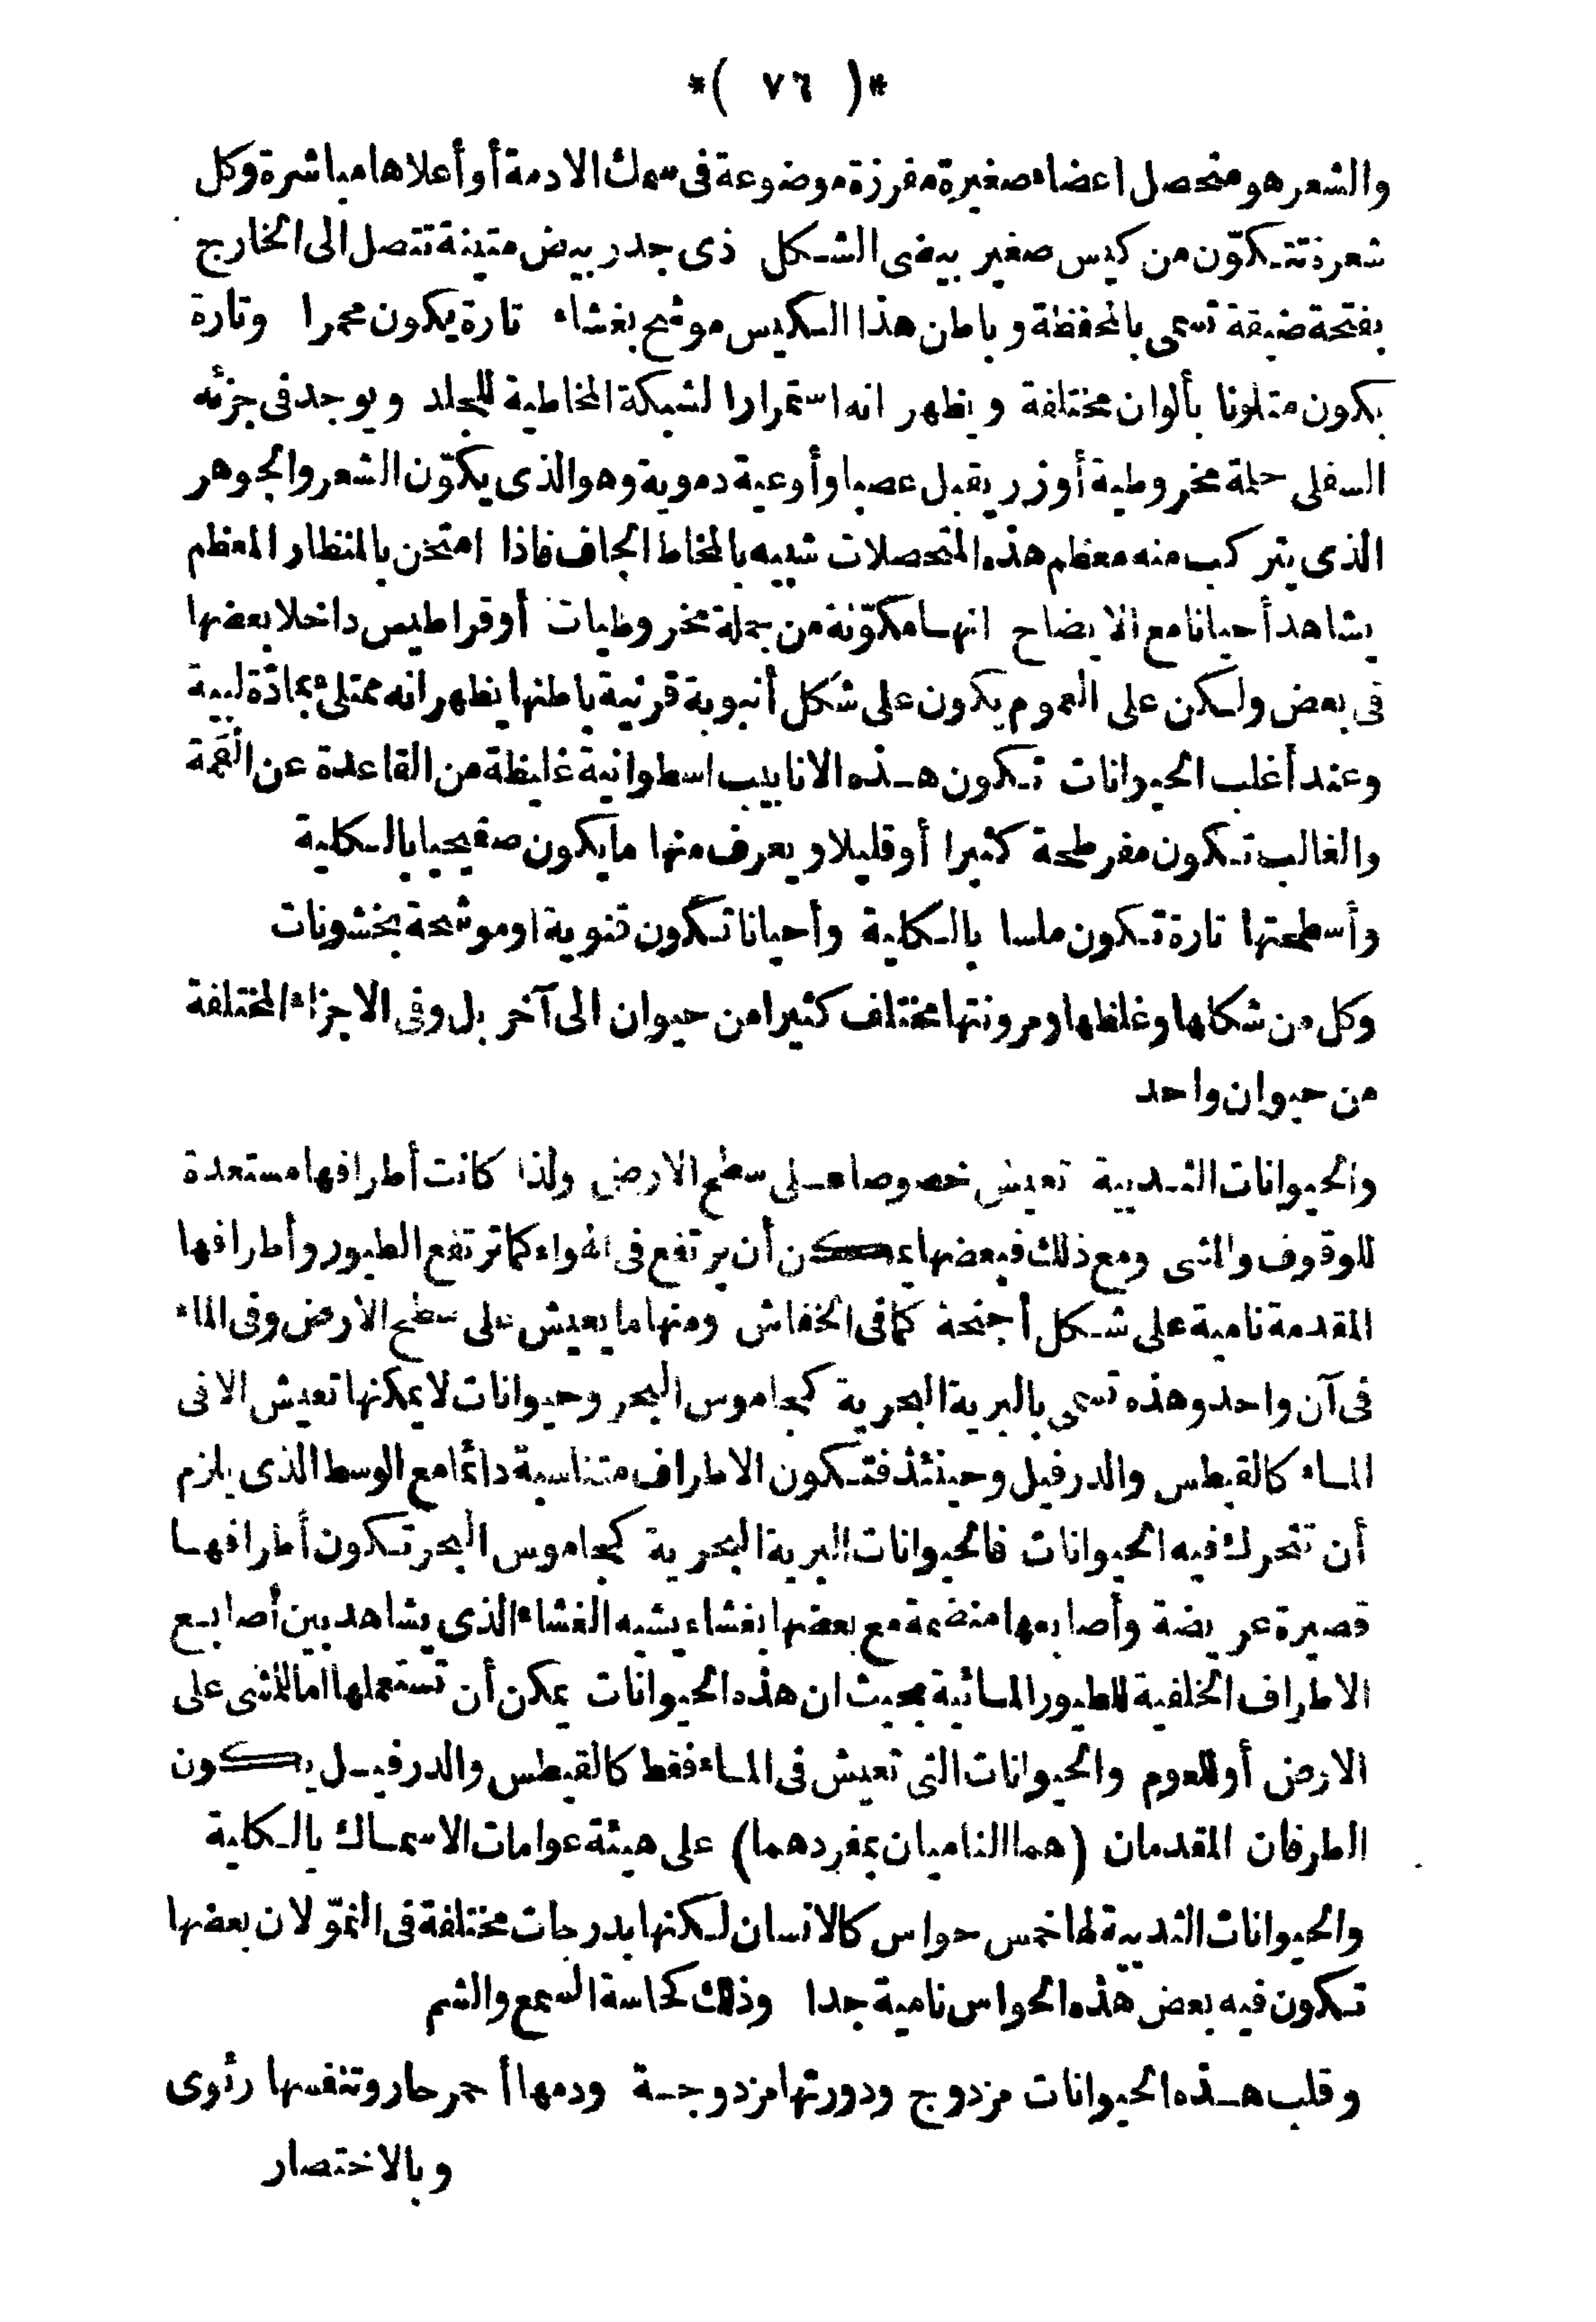 *( ٧٦ )*
والشعر هو متحصل اعضاء صغيرة مفرزة موضوعة فى سمك الادمة أو أعلاها مباشرة وكل
شعرة تتكوّن من كيس صغير بيضى الشكل ذى جدر بيض متينة تتصل الى الخارج
بفتحة ضيقة تسمى بالمحفظة وباطن هذا الكيس موشح بغشاء تارة يكون محمرا وتارة
يكون متلونا بألوان مختلفة ويظهر انه استمرارا لشبكة المخاطية للجلد ويوجد فى جزئه
السفلى حلمة مخروطية أو زر يقبل عصبا وأوعية دموية وهو الذى يكوّن الشعر والجوهر
الذى يتركب منه معظم هذه المتحصلات شبيه بالمخاط الجاف فاذا امتحن بالمنظار المعظم
يشاهد أحيانا مع الايضاح انها مكوّنة من جملة مخروطيات أو قراطيس داخلا بعضها
فى بعض ولكن على العموم يكون على شكل أنبوبة قرنية باطنها يظهر انه ممتلئ بمادّة لبية
وعند أغلب الحيوانات تكون هذه الانابيب اسطوانية غليظة من القاعدة عن القمة
والغالب تكون مفرطحة كثيرا أو قليلا ويعرف منها ما يكون صفيحيا بالكلية
وأسطحتها تارة تكون ملسا بالكلية وأحيانا تكون قنوية او موشحة بخشونات
وكل من شكلها وغلظها ومرونتها مختلف كثيرا من حيوان الى آخر بل وفى الاجزاء المختلفة
من حيوان واحد
والحيوانات الثديية تعيش خصوصا على سطح الارض ولذا كانت أطرافها مستعدة
للوقوف والمشى ومع ذلك فبعضها يمكن أن يرتفع فى الهواء كما ترتفع الطيور وأطرافها
المقدمة نامية على شكل أجنحة كما فى الخفاش ومنها ما يعيش على سطح الارض وفى الماء
فى آن واحد وهذه تسمى بالبرية البحرية كجاموس البحر وحيوانات لا يمكنها تعيش الا فى
الماء كالقيطس والدرفيل وحينئذ فتكون الاطراف متناسبة دائما مع الوسط الذى يلزم
أن تتحرك فيه الحيوانات فالحيوانات البرية البحرية كجاموس البحر تكون أطرافها
قصيرة عريضة وأصابعها منضمة مع بعضها بغشاء يشبه الغشاء الذى يشاهد بين أصابع
الاطراف الخلفية للطيور المائية بحيث ان هذه الحيوانات يمكن أن تستعملها اما للمشى على
الارض أو للعوم والحيوانات التى تعيش فى الماء فقط كالقيطس والدرفيل يكون
الطرفان المقدمان (هما الناميان بمفردهما) على هيئة عوامات الاسماك بالكلية
والحيوانات الثديية لها خمس حواس كالانسان لكنها بدرجات مختلفة فى النموّ لان بعضها
تكون فيه بعض هذه الحواس نامية جدا وذلك كحاسة السمع والشم
وقلب هذه الحيوانات مزدوج ودورتها مزدوجة ودمها أحمر حار وتنفسها رئوى
وبالاختصار